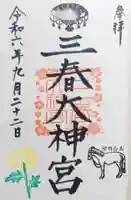 奉拝
三春大神宮
令和六年九月二十二日